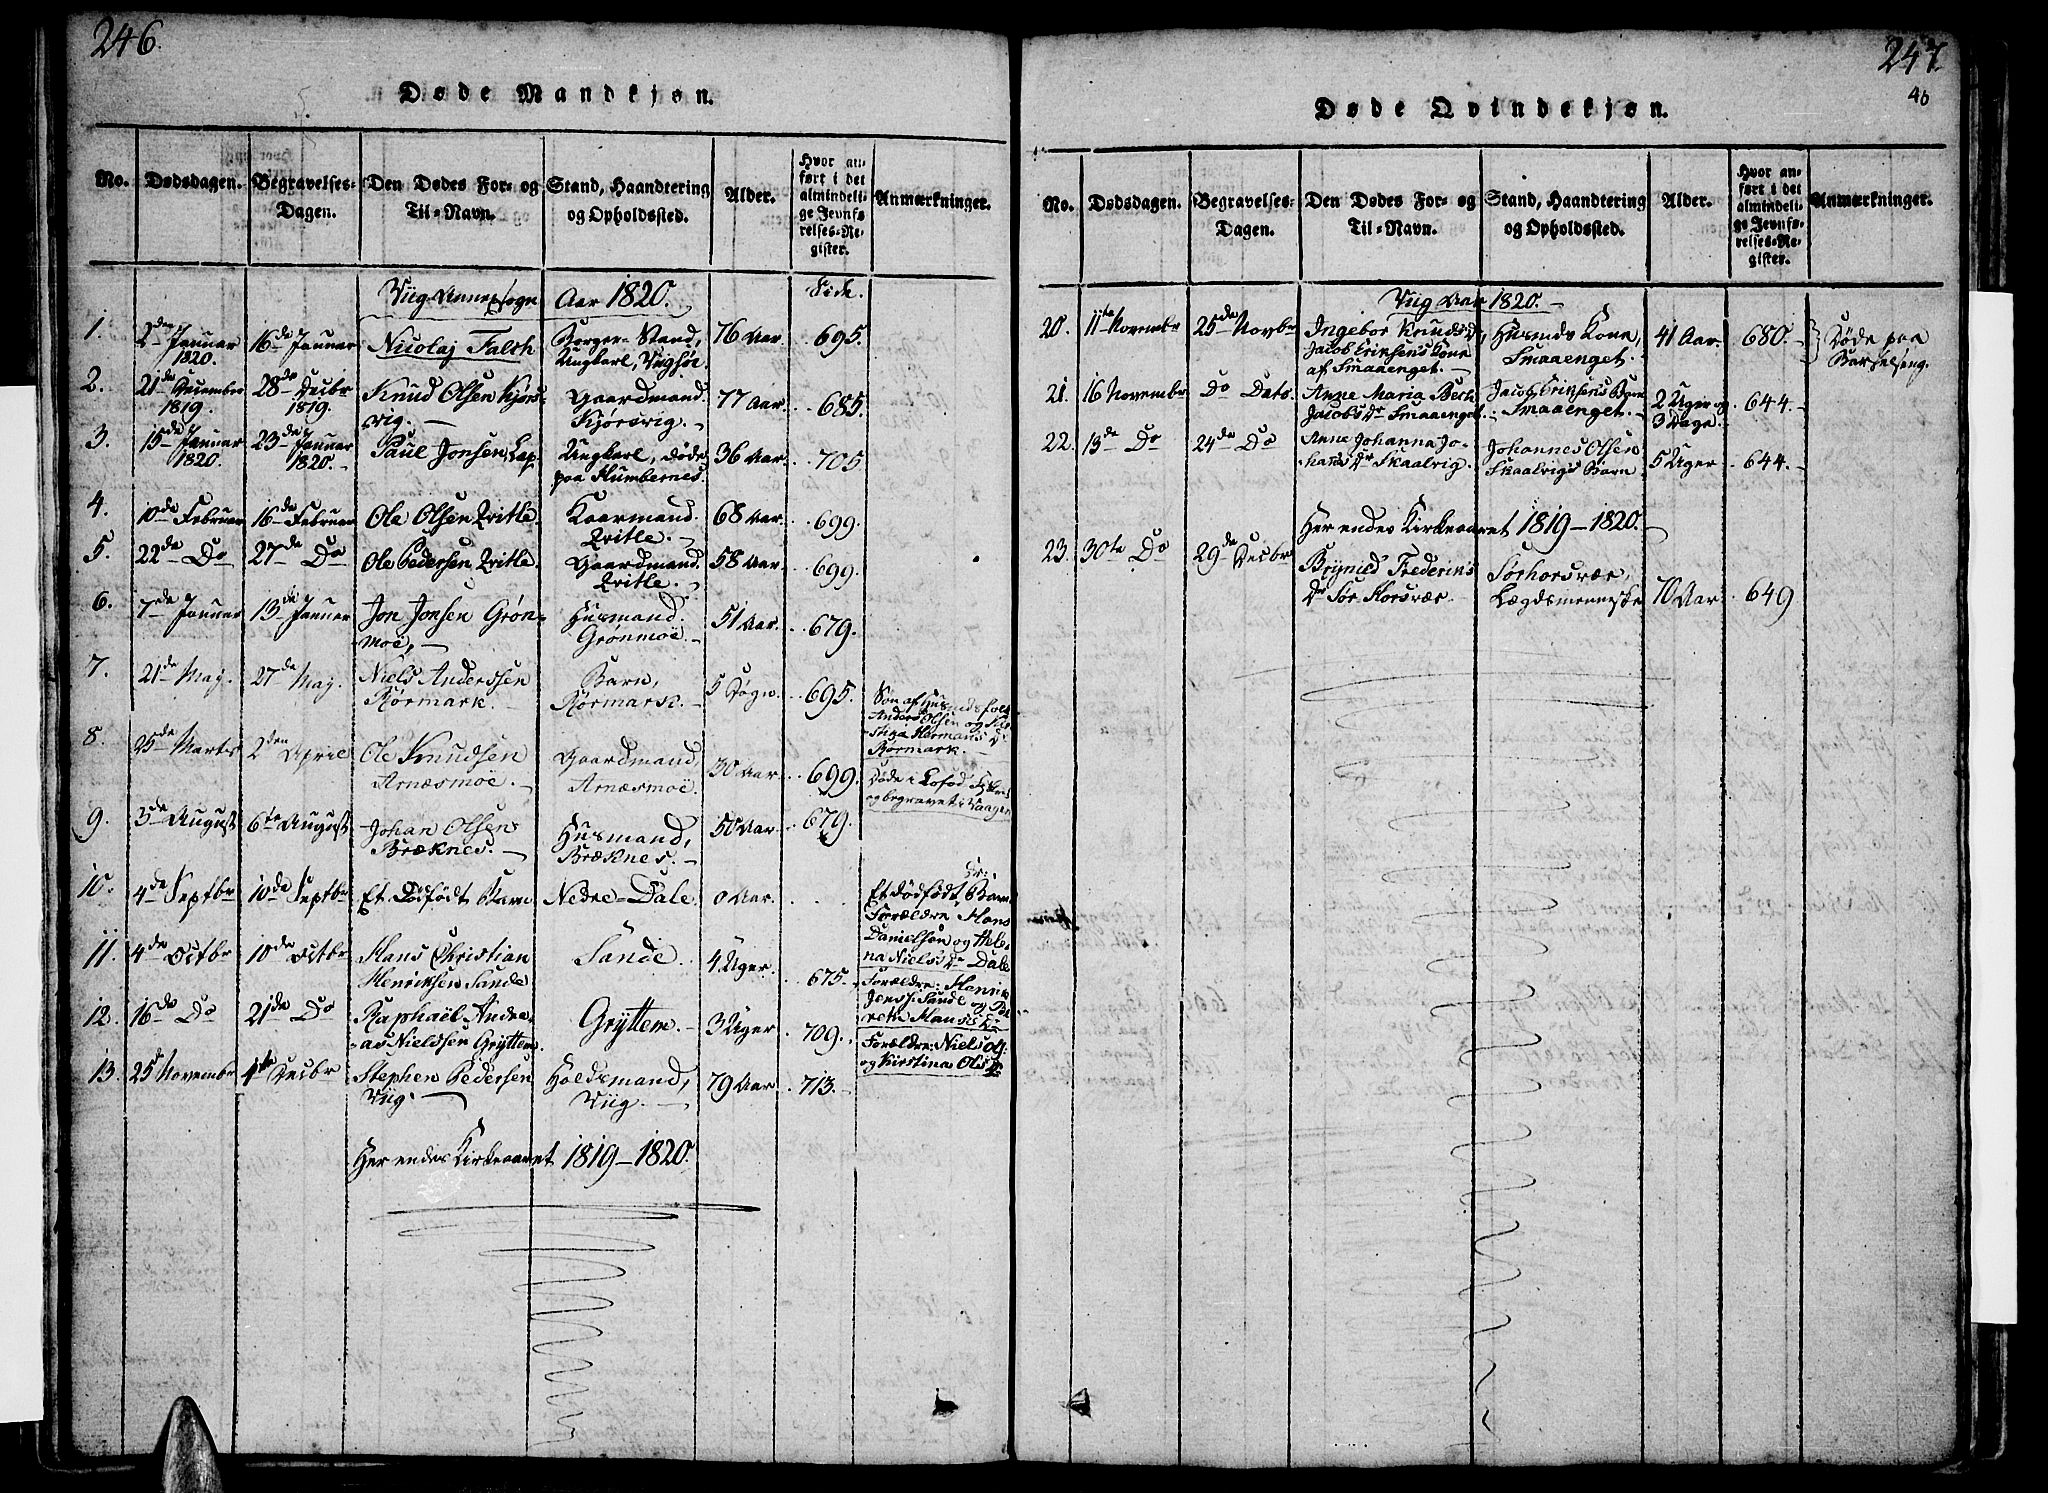 246.
Døde Mandkjøn.
No. Dødsdagen. Begravelses-Dagen. Den Dødes For- og Til-Navn. Stand, Haandtering og Opholdssted. Alder. Hvor anført i det almindelige Jevnførelses-Register. Anmærkninger.
Viig Annexsogn Aar 1820. Side.
1. 2den Januar 1820. 16de Januar Nicolaj Falch Borger-Stand, Ungkarl, 76 Aar. 695.
2. 21de December 1819. 28de Decbr 1819. Knud Olsen Kjørsvig. Gaardmand. Kjørsvig. 77 Aar. 685.
3. 15de Januar 1820. 23de Januar 1820. Paul Jonsen Lap. Ungkarl, døde paa Humbernes. 36 Aar. 705
4. 10de Februar 16de Februar Ole Olsen Qvitle. Kaarmand. Qvitle. 68 Aar. 699.
5. 22de Do 27de Do Ole Pedersen Qvitle. Gaardmand. Qvitle. 58 Aar. 699.
6. 7de Januar 13de Januar Jon Jonsen Grønmoe, Husmand. Grønmoe. 51 Aar. 679.
7. 21de Maj. 27de Maj. Niels Anderssen Rørmark. Barn, Rørmark. 5 Døgn. 695. Søn af Husmandsfolk Anders Olsen og Hermans Dr Rørmark.
8. 25de Marts 2den April Ole Knudsen Arnæsmoe. Gaardmand, Arnæsmoe. 30 Aar. 699. Døde i Lofod og begravet i Vaagen
9. 3de August 6te August Johan Olsen Bræknes. Husmand, Bræknes. 50 Aar. 679.
10. 4de Septbr 10de Septbr Et Dødfødt Barn Nedre-Dale. 0 Aar. Et Dødfødt Barn Forældre Hans Danielsøn og Helena Niels Dr Dale
11. 4de Octbr 10de Octbr Hans Christian Henriksen Sande Sande. 4 Uger. 675. Forældre: Henrik Jens: Sande og Hans Dr
12. 16de Do 21de Do Raphaël Andreas Nielssen Gryttem. Gryttem. 3 Uger 709. Forældre: Niels Ols: og Kirstina Ols Dr
13. 25de Novembr 4de Decbr Stephen Pedersen Viig. Holdsmand, Viig. 79 Aar. 713.
Her endes Kirkeaaret 1819-1820.
247.
46
Døde Qvindekjøn.
No. Dødsdagen. Begravelses-Dagen. Den Dødes For- og Til-Navn. Stand, Haandtering og Opholdssted. Alder. Hvor anført i det almindelige Jevnførelses-Register. Anmærkninger.
Viig Aar 1820.
20. 11te Novembr 25de Novbr Ingebor Knudsdr, Jacob Eriksens Kone af Smaaenget. Husmds Kone, Smaaenget. 41 Aar. 680. Døde paa Barselseng.
21. 16 Novembr Do Dato. Anne Maria Jacobs Dr Smaaenget. Jacob Eriksens Barn Smaaenget. 2 Uger og 3 Dage. 644.
22. 13de Do 24de Do Anne Johanna Johans Dr Skaalvig. Johannes Olsen Skaalvigs Barn 5 Uger 644.
Her endes Kirkeaaret 1819-1820.
23. 30te Do 29de Decbr Frederiks Dr Sør Horsvær. Sørhorsvær, Lægdsmenneske 70 Aar 649